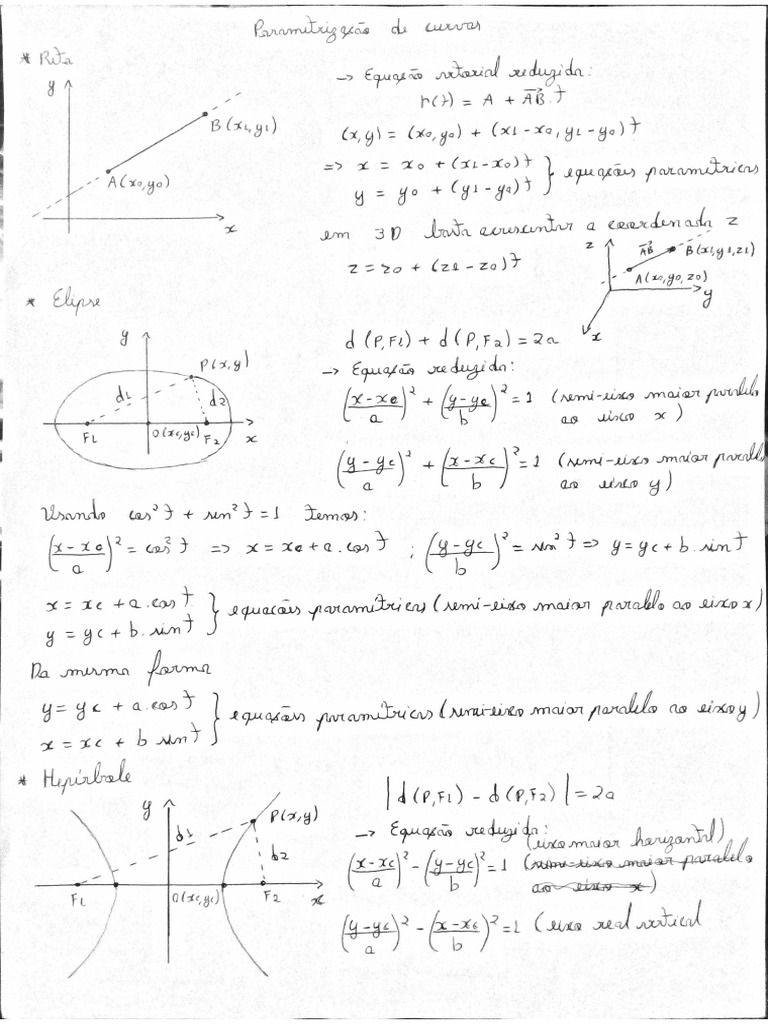 Parametrização de curvas
* Reta
→ Equação vetorial reduzida:
r(t) = A + AB⃗.t
(x,y) = (x0,y0) + (x1-x0, y1-y0)t
=> x = x0 + (x1-x0)t
y = y0 + (y1-y0)t } equações paramétricas
em 3D basta acrescentar a coordenada z
z = z0 + (z1-z0)t
y
B(x1,y1)
A(x0,y0)
x
z
AB⃗
B(x1,y1,z1)
A(x0,y0,z0)
y
x
* Elipse
y
P(x,y)
d1
d2
F1
O(xc,yc)
F2
x
d(P,F1) + d(P,F2) = 2a
→ Equação reduzida:
((x-xc)/a)² + ((y-yc)/b)² = 1 (semi-eixo maior paralelo
ao eixo x)
((y-yc)/a)² + ((x-xc)/b)² = 1 (semi-eixo maior paralelo
ao eixo y)
Usando cos²t + sin²t = 1 temos:
((x-xc)/a)² = cos²t => x = xc + a.cost ; ((y-yc)/b)² = sin²t => y = yc + b.sint
x = xc + a.cost
y = yc + b.sint } equações paramétricas (semi-eixo maior paralelo ao eixo x)
Da mesma forma
y = yc + a.cost
x = xc + b sint } equações paramétricas (semi-eixo maior paralelo ao eixo y)
* Hepérbole
y
P(x,y)
d1
d2
F1
O(xc,yc)
F2
x
|d(P,F1) - d(P,F2)| = 2a
→ Equação reduzida:
(eixo maior horizontal)
((x-xc)/a)² - ((y-yc)/b)² = 1 (semi-eixo maior paralelo
ao eixo x)
((y-yc)/a)² - ((x-xc)/b)² = 1 (eixo real vertical